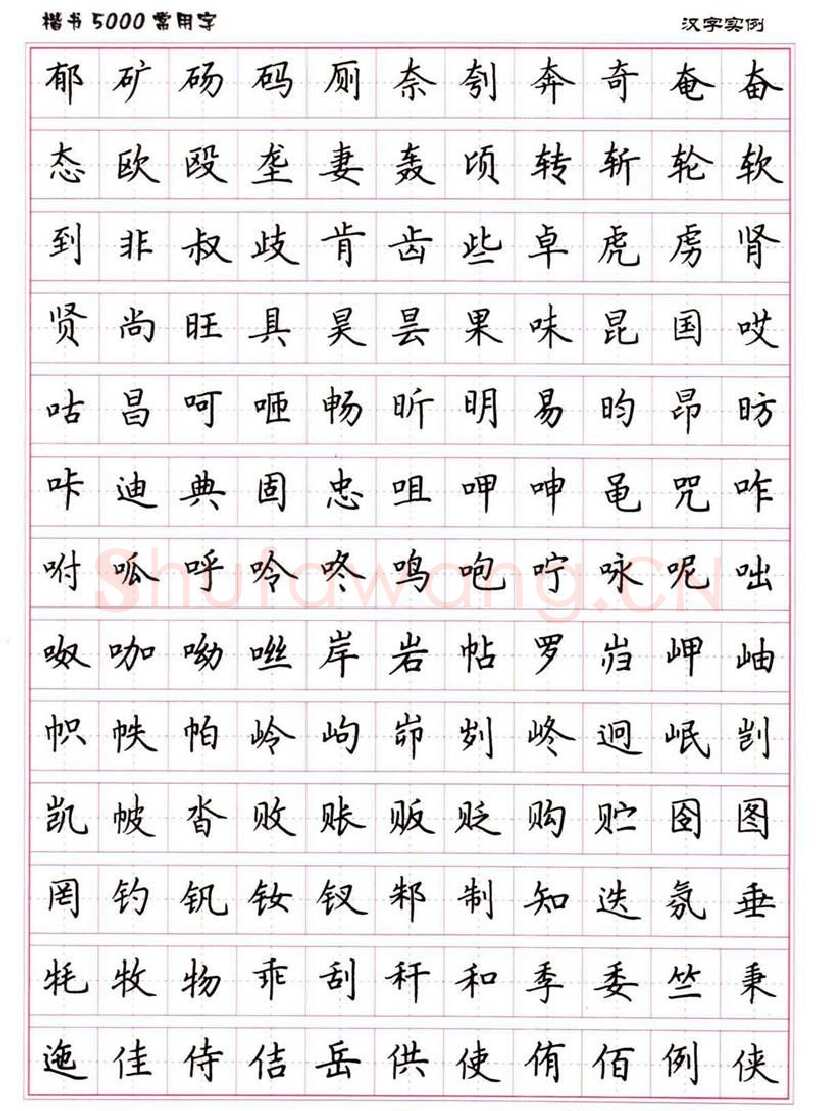 楷书5000常用字 汉字实例
郁矿砀码厕奈刳奔奇奄奋
态欧殴垄妻轰顷转斩轮软
到非叔歧肯齿些卓虎虏肾
贤尚旺具昊昙果味昆国哎
咕昌呵咂畅昕明易昀昂昉
咔迪典固忠咀呷呻黾咒咋
咐呱呼呤咚鸣咆咛咏呢咄
呶咖呦咝岸岩帖罗岿岬岫
帜帙帕岭岣峁刿峂迥岷剀
凯帔沓败账贩贬购贮囵图
罔钓钒钕钗邾制知迭氛垂
牦牧物乖刮秆和季委竺秉
迤佳侍佶岳供使侑佰例侠
Shufawang.CN